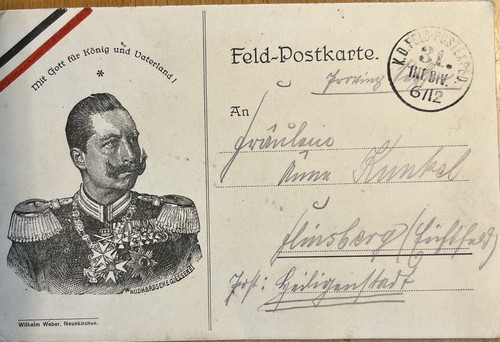 Mit Gott für König und Vaterland!
*
Feld-Postkarte.
K.D. FELD-POSTEXPED.
31.
INF. DIV.
6/12
Provinz
An
Fräulein
Anna Kunkel
Flinsberg (Eichsfeld)
Post: Heiligenstadt
Wilhelm Weber, Neunkirchen.